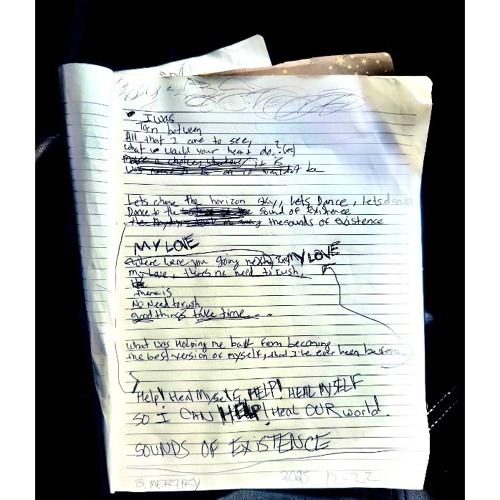 I was
Torn between
All that I came to see,
what would your heart do?
Make a choice, whether it is
Lets chase the horizon sky, Lets Dance, lets dance
Dance to the sound of Existence
the sounds of existence
MY LOVE
where were you going next? MY LOVE
my love, theres no need to rush,
there is
No Need to rush,
good things take time...
what was Holding me back from becoming
the best version of myself, that I've ever been before
Help! Heal Myself, HELP! HEAL MYSELF
SO I CAN HELP! Heal OUR world.
SOUNDS OF EXISTENCE
2025 12-22